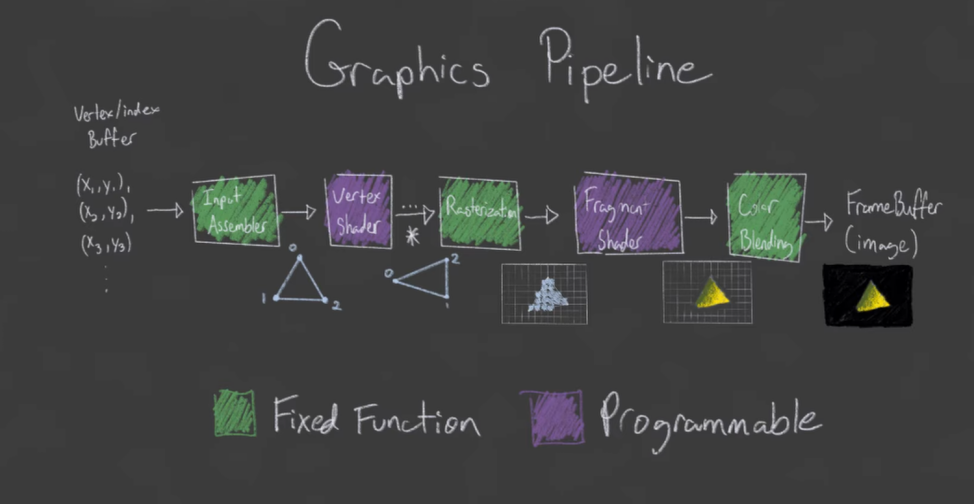 Graphics Pipeline
Vertex/index
Buffer
(x₁,y₁),
(x₂,y₂),
(x₃,y₃)
⋮
Input
Assembler
Vertex
Shader
...
*
Rasterization
Fragment
Shader
Color
Blending
FrameBuffer
(image)
0
1
2
0
2
1
Fixed Function
Programmable